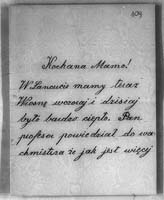 104
Kochana Mamo!
W Lancucie mamy teraz
Wiosnę wczoraj i dzisiaj
było bardzo ciepło. Pan
profesor powiedział do wa
chmistrza że jak jest więcej